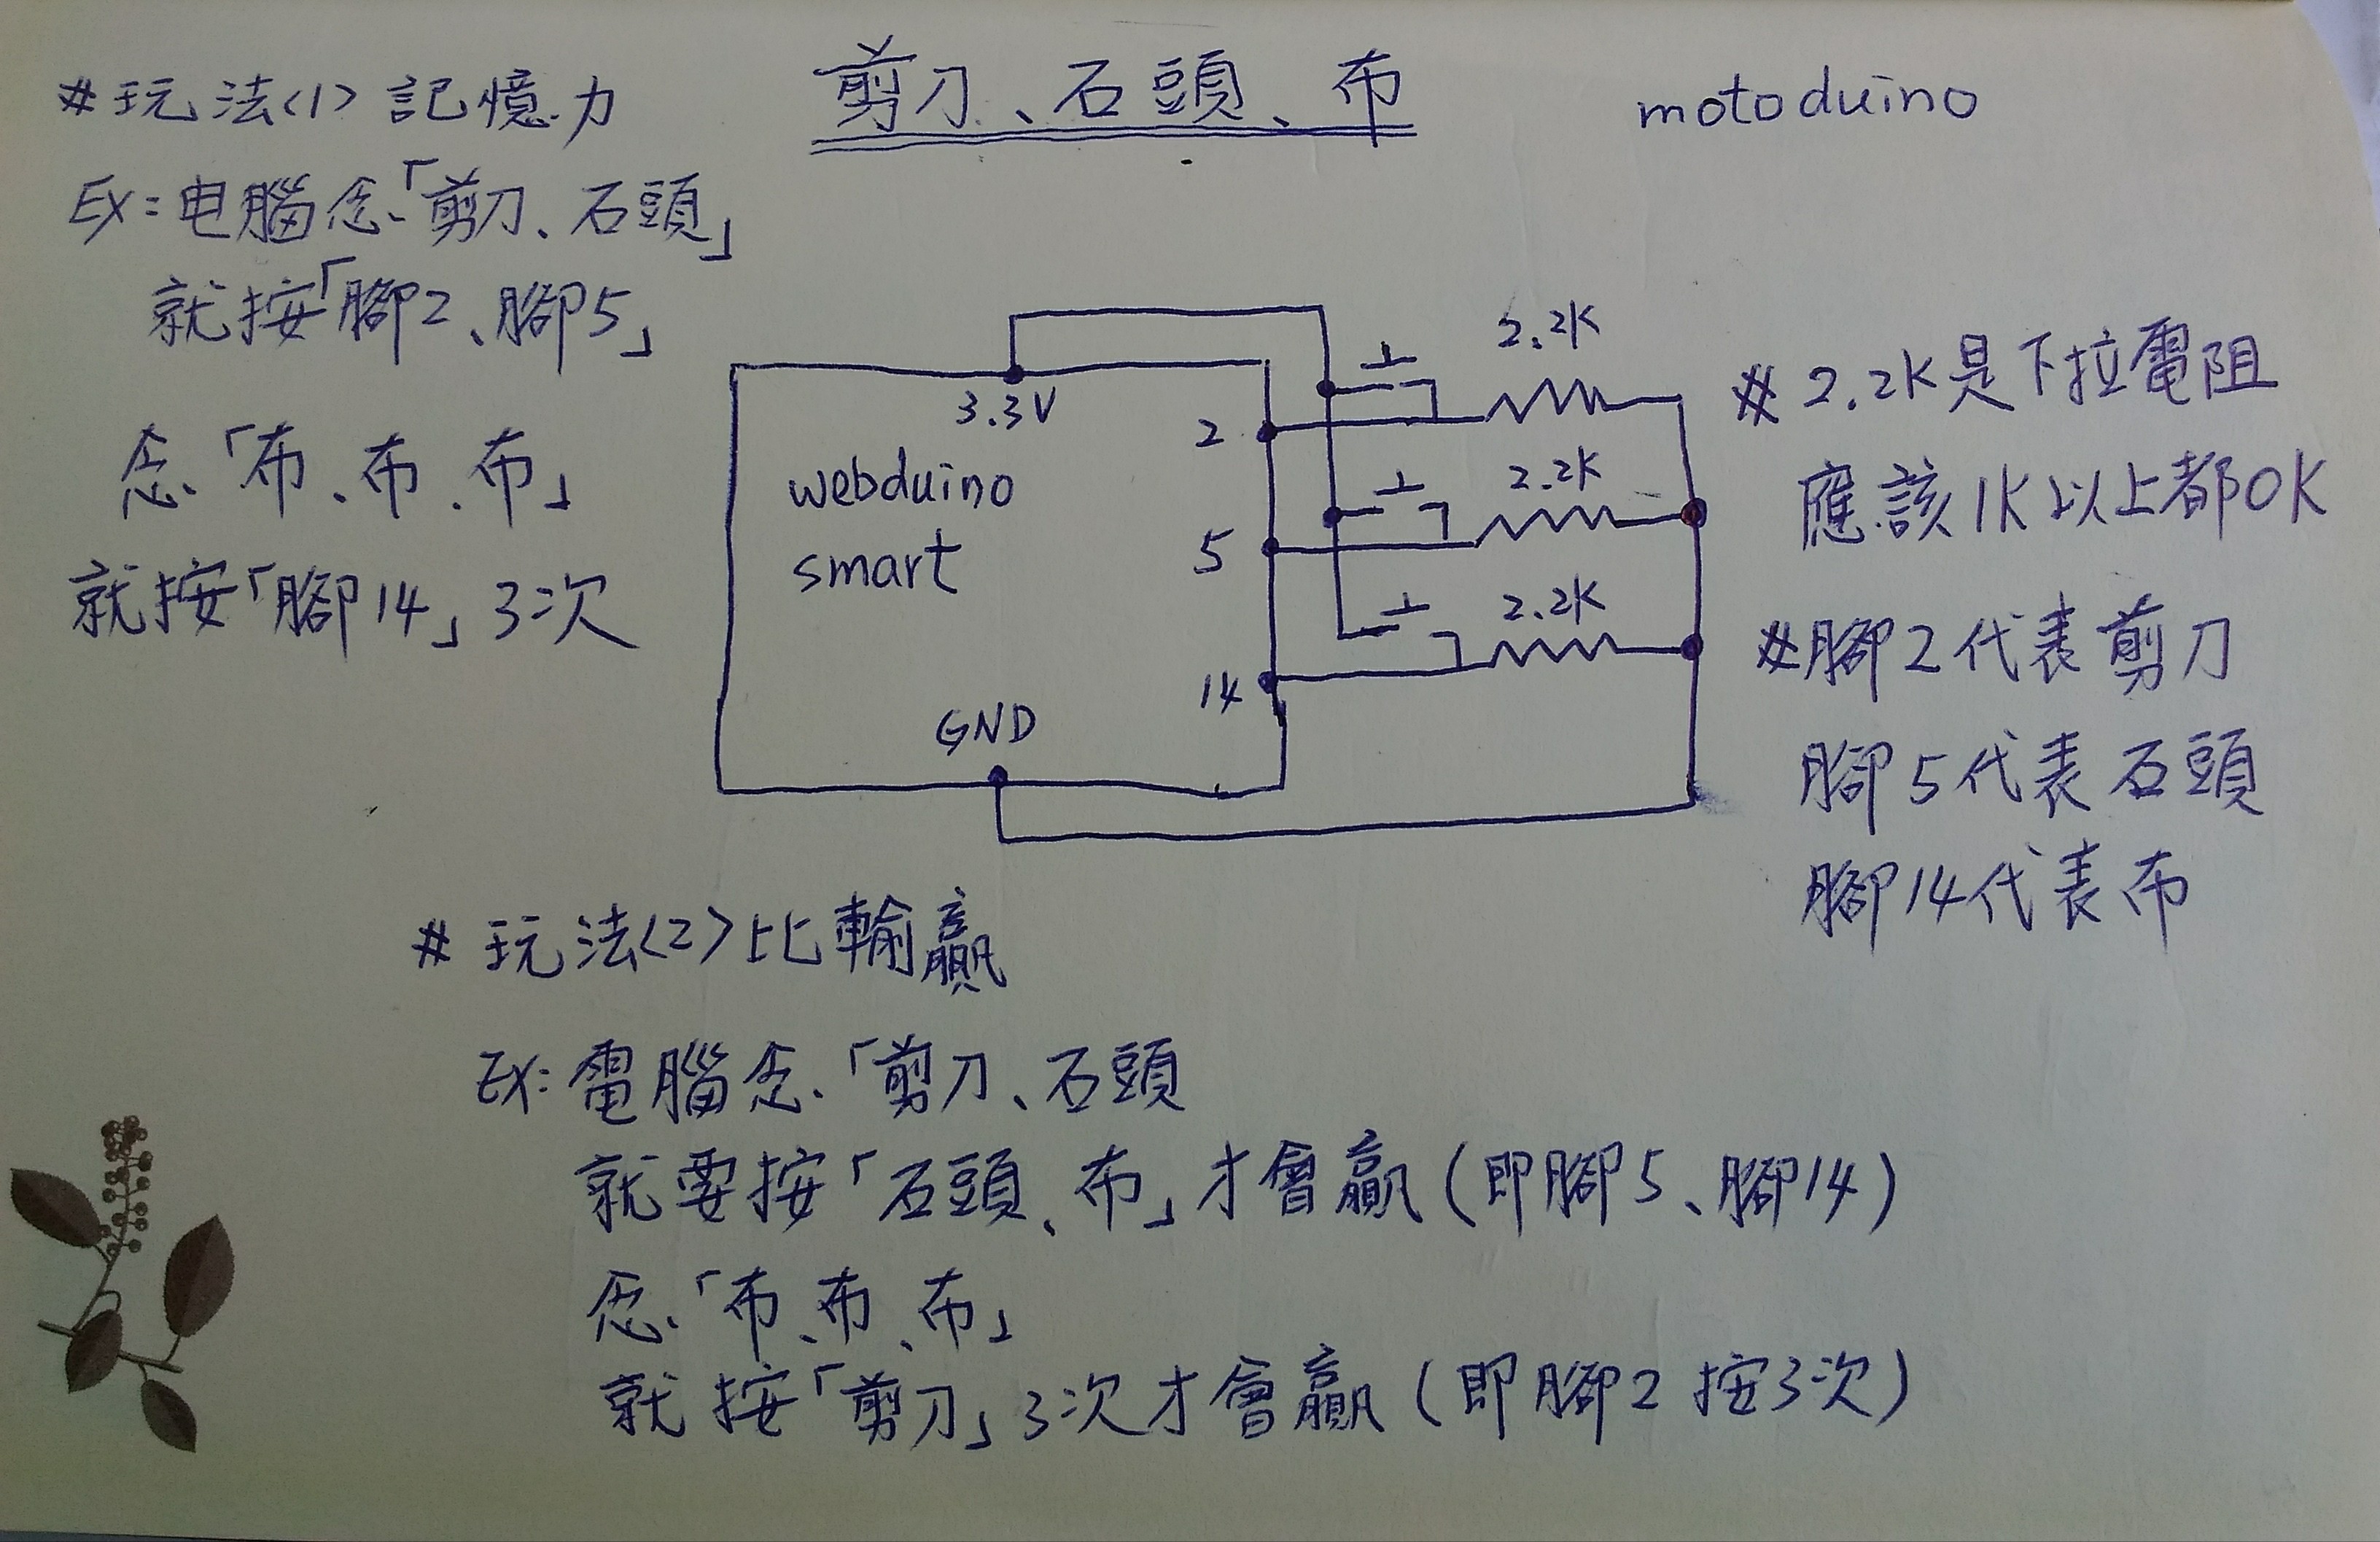 剪刀、石頭、布
motoduino
#玩法<1>記憶力
EX:电腦念「剪刀、石頭」
就按「腳2、腳5」
念「布、布、布」
就按「腳14」3次
3.3V
webduino
smart
2
5
14
GND
2.2K
2.2K
2.2K
#2.2K是下拉電阻
應該1K以上都OK
#腳2代表剪刀
腳5代表石頭
腳14代表布
#玩法<2>比輸贏
EX:電腦念「剪刀、石頭
就要按「石頭、布」才會贏(即腳5、腳14)
念「布、布、布」
就按「剪刀」3次才會贏(即腳2按3次)